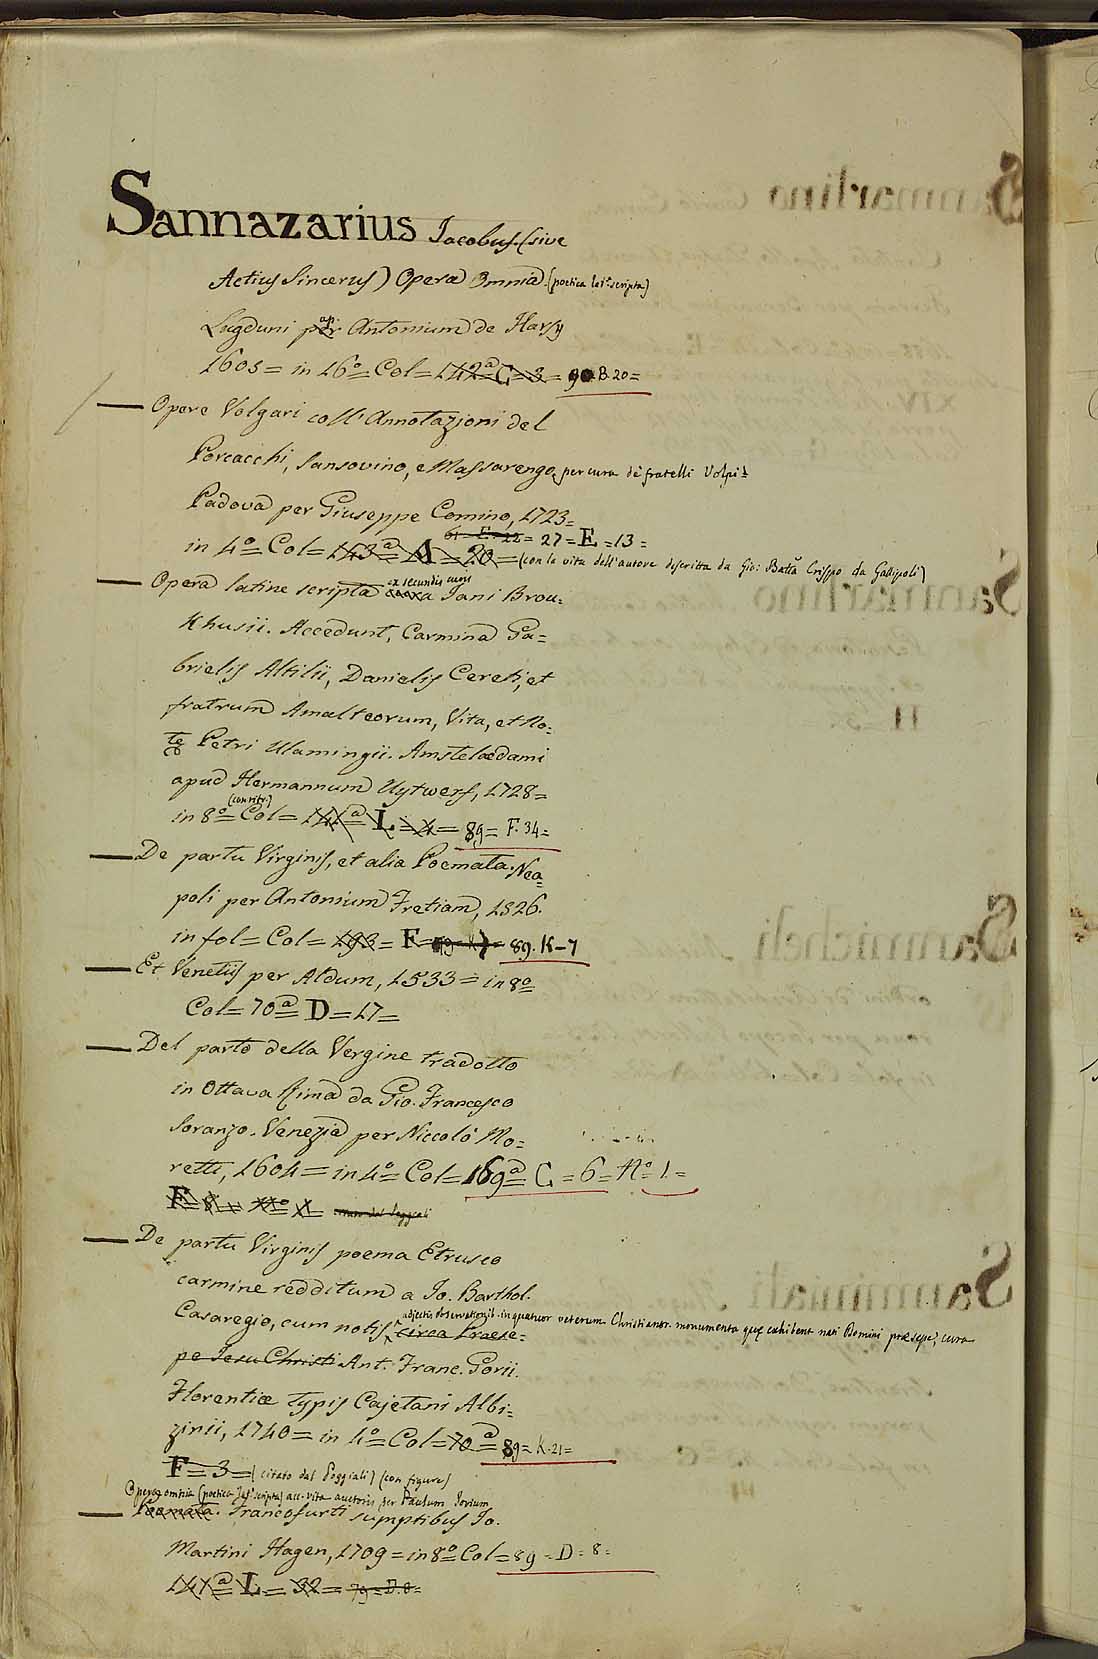 Sannazarius Jacobus (sive
Actius Sincerus) Opera Omnia (poetica lat.e scripta)
ap.
Lugduni per Antonium de Harsy
1603 = in 16º = Col = 142ª = C = 3 = 90 B. 20 =
Opere Volgari coll' Annotazioni del
Porcacchi, Sansovino, e Massarengo, per cura de' fratelli Volpi =
Padova per Giuseppe Comino, 1723 =
61 - E - 22 = 27 = E = 13 =
in 4º = Col = 143ª = A = 20 = (con la vita dell'autore descritta da Gio: Batta Crispo da Gallipoli)
ex secundis curis
Opera latine scripta Jani Brou=
khusii. Accedunt, Carmina Ga=
brielis Altilii, Danielis Cereti, et
fratrum Amalteorum, Vita, et No=
tę Petri Ulamingii. Amstelædami
apud Hermannum Uytwerf, 1728 =
(con ritr.)
in 8º = Col = 141ª = L = 4 = 89 = F. 34 =
De partu Virginis, et alia Poemata. Nea=
poli per Antonium Fretiam, 1526.
in fol = Col = 193 = F = 89. K - 7
Et Venetiis per Aldum, 1533 = in 8º =
Col = 70ª = D = 17 =
Del parto della Vergine tradotto
in Ottava Rima da Gio. Francesco
Soranzo. Venezia per Niccolò Mo=
retti, 1604 = in 4º = Col = 169ª = C = 6 = Nº 1. =
F = nº
De partu Virginis poema Etrusco
carmine redditum a Jo. Barthol.
adjectis observationib. in quatuor veterum Christianor. monumenta quę exhibent nati Domini præsepe, cura
Casaregio, cum notis circa Praese=
pe Jesu Christi Ant. Franc. Gorii.
Florentiæ typis Cajetani Albi=
zinii, 1740 = in 4º = Col = 70ª = 89 = K. 21 =
F = 3 = (citato dal Poggiali) (con figure)
Opera omnia (poetica lat.e scripta) acc. vita auctoris per Paulum Jovium
Poemata. Francofurti sumptibus Jo.
Martini Hagen, 1709 = in 8º = Col = 89 = D = 8 =
141ª = L = 32 = 79 = D. 8 =